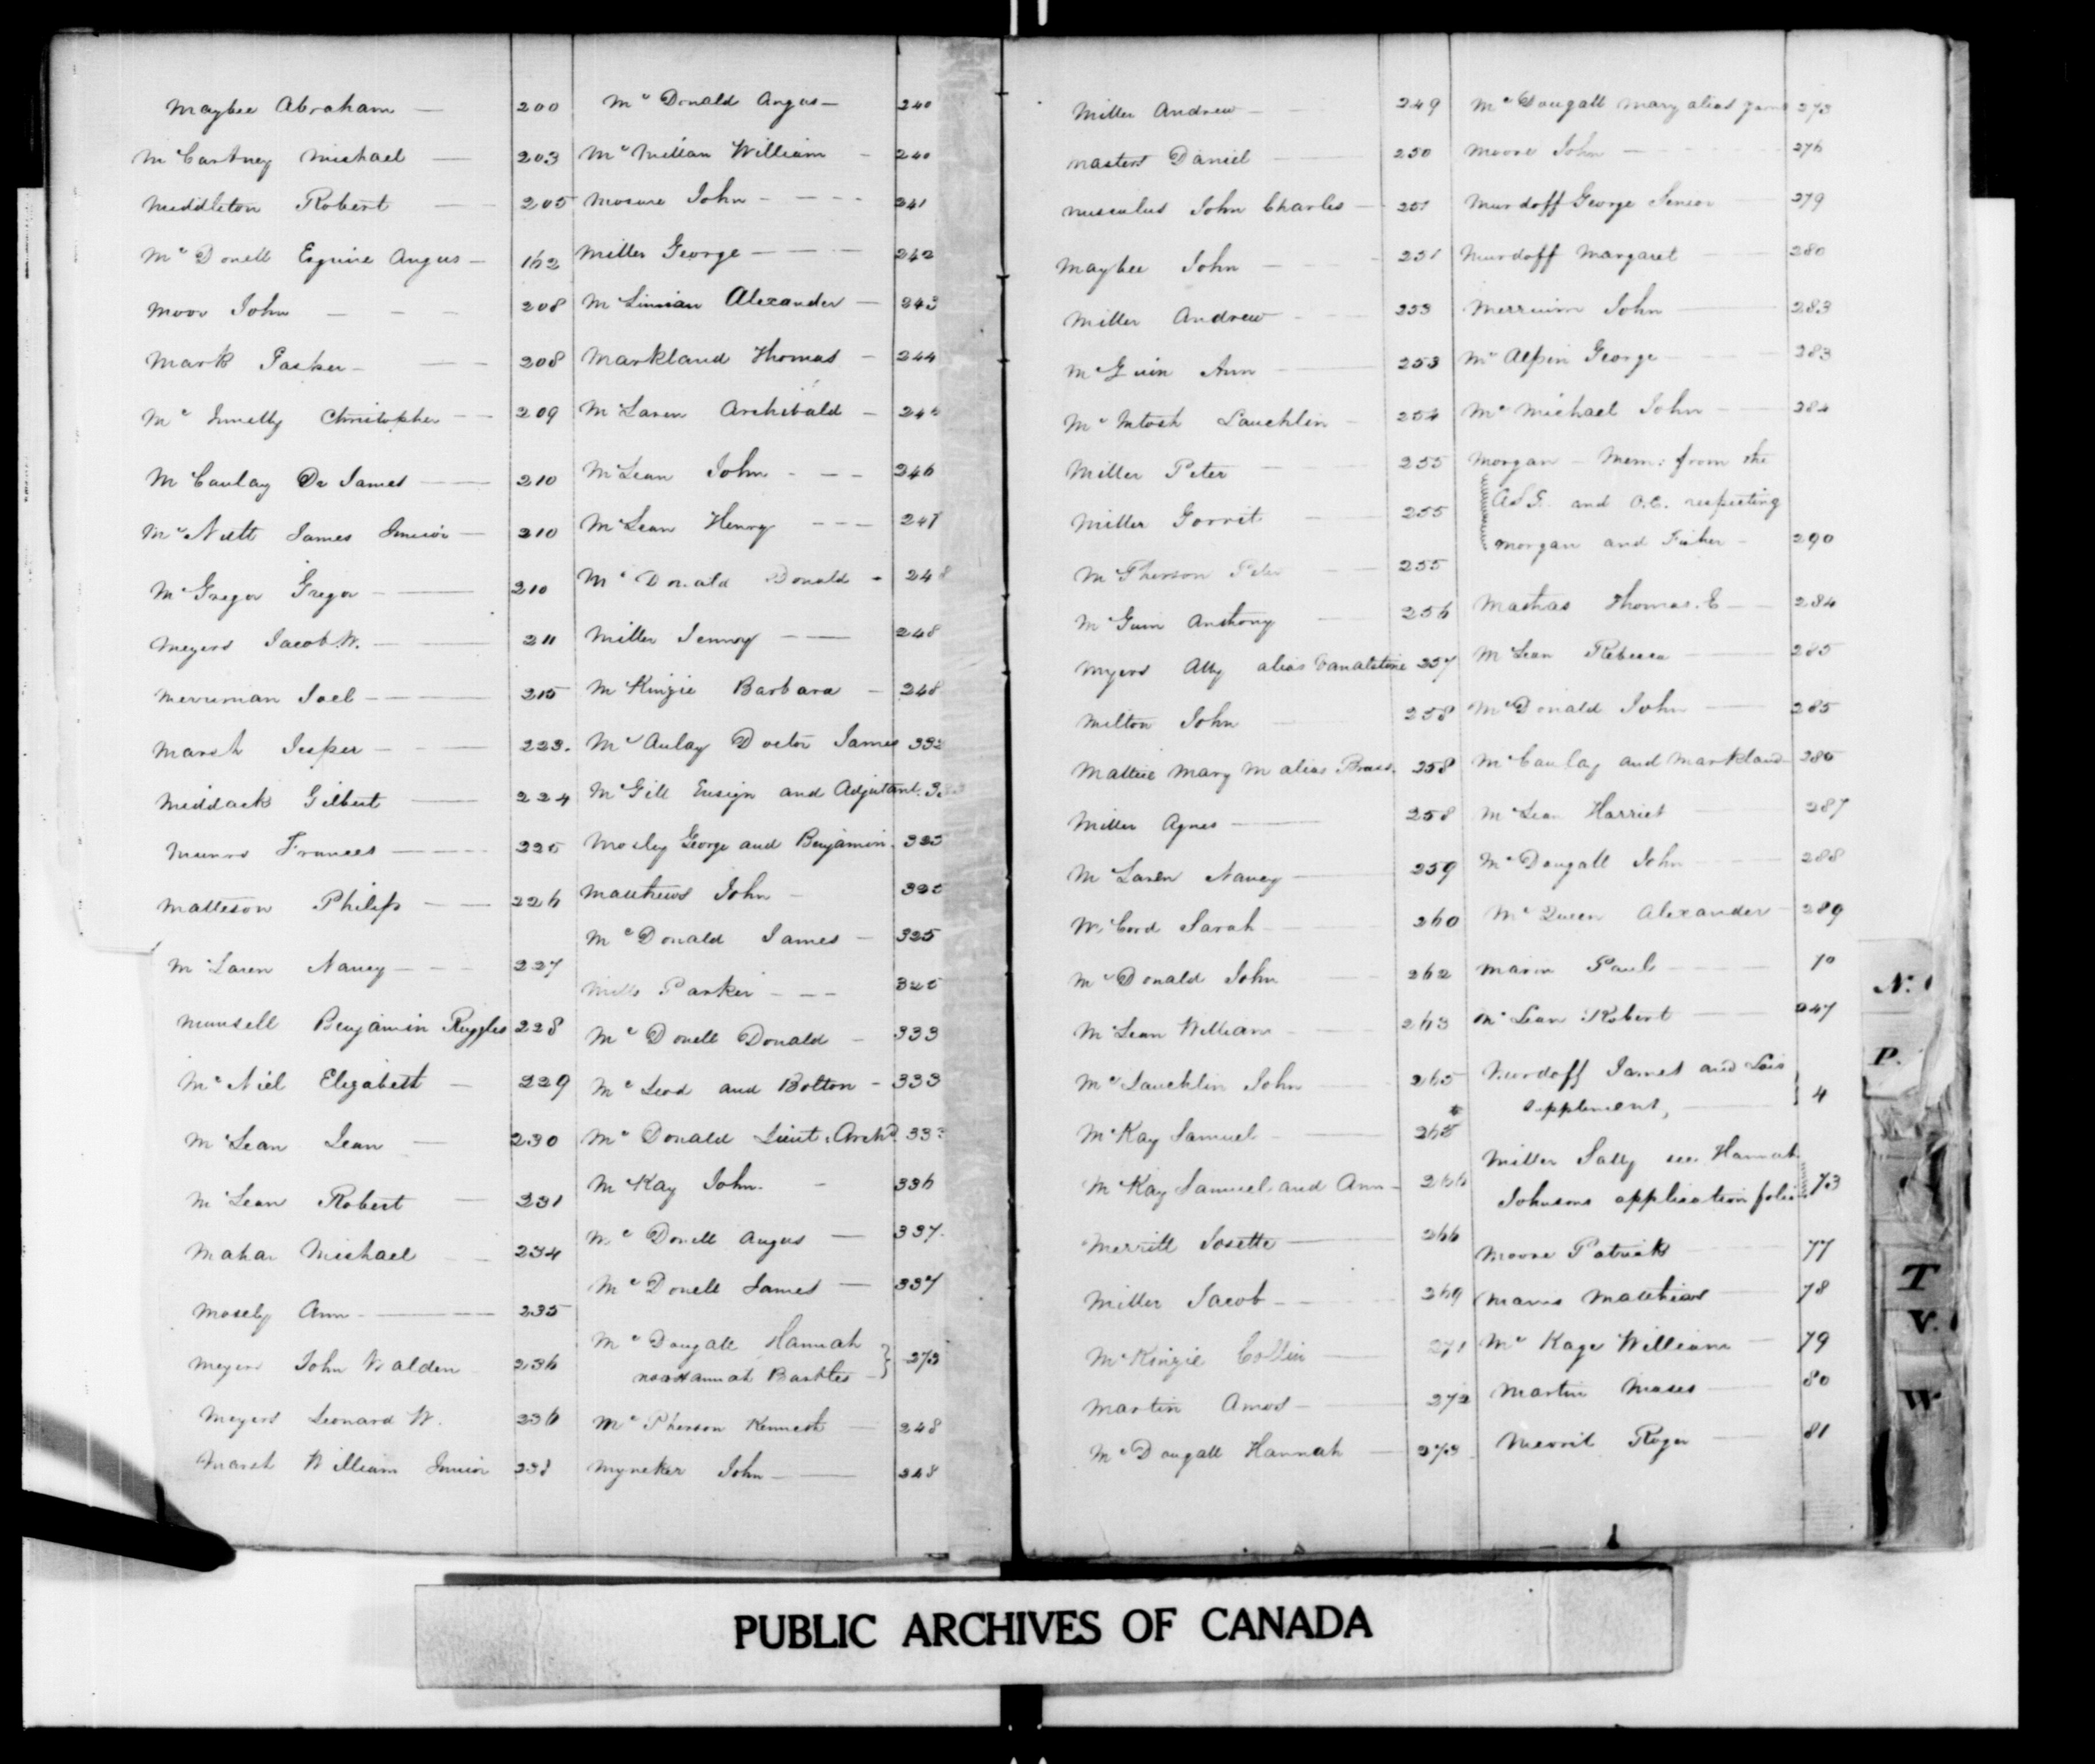 Maybee Abraham — 200
McCartney Michael — 203
Middleton Robert — 205
McDonell Esquire Angus — 162
Moor John — 208
Mark Pasker — 208
Mc Christopher — 209
McCaulay Dr James — 210
McNutt James Junior — 210
McGregor Gregor — 210
Meyers Jacob W. — 211
Merriman Joel — 215
Marsh Jesper — 223.
Middack Gilbert — 224
Munro Frances — 225
Matteson Philip — 226
McLaren Nancy — 227
Munsell Benjamin Ruggles 228
McNiel Elizabeth — 229
McLean Jean — 230
McLean Robert — 231
Mahar Michael — 234
Mosely Ann — 235
Meyers John Walden 236
Meyers Leonard W. 236
Marsh William Junior
McDonald Angus — 240
McMillan William — 240
Mosure John — 241
Miller George — 242
Mc Alexander — 243
Markland Thomas — 244
McLaren Archibald — 246
McLean John — 246
McLean Henry — 247
McDonald Donald — 248
Miller Jenny — 248
McKinzie Barbara — 248
McAulay Doctor James 332
McGill Ensign and Adjutant.
Mosley George and Benjamin. 325
Matthews John — 325
McDonald James — 325
Mills Parker — 325
McDonell Donald — 333
McLeod and Bolton — 333
McDonald Lieut. Archd. 333
McKay John. — 336
McDonell Angus — 337.
McDonell James — 337
McDougall Hannah
now Hannah Bartles — 273
McPherson Kenneth — 248
Myneker John — 248
Miller Andrew — 249
Masters Daniel — 250
Musculus John Charles — 251
Maybee John — 251
Miller Andrew — 253
McGuin Ann — 253
McIntosh Lauchlin — 254
Miller Peter — 255
Miller Gorrit — 255
McPherson Peter — 255
McGuin Anthony — 256
Myers Ally alias Vanalstine 257
Milton John — 258
Mattice Mary M alias 258
Miller Agnes — 258
McLaren Nancy — 259
McCord Sarah — 260
McDonald John 262
McLean William — 263
McLaucklin John — 265
McKay Samuel — 265
McKay Samuel and Ann — 266
Merritt Josette — 266
Miller Jacob — 269
McKinzie Collin — 271
Martin Amos — 272
McDougall Hannah — 273
McDougall Mary alias 273
Moore John — 276
Murdoff George Senior — 279
Murdoff Margaret — 280
Merrium John — 283
McAlpin George — 283
McMichael John — 284
Morgan — Mem: from the
A.S.G. and O.C. respecting
Morgan and Fisher — 290
Mathas Thomas. C — 284
McLean Rebecca — 285
McDonald John — 285
McCaulay and Markland — 286
McLean Harriet — 287
McDougall John — 288
McQueen Alexander — 289
Marin Paul — 10
McLean Robert — 247
Murdoff James and Lois
supplement, — 4
Miller Sally see Hannah
Johnsons application folio 73
Moore Patrick — 77
Mavis Matthias — 78
McKage William — 79
Martin Moses — 80
Merrit Roger — 81
N.
P.
T
V.
W
PUBLIC ARCHIVES OF CANADA